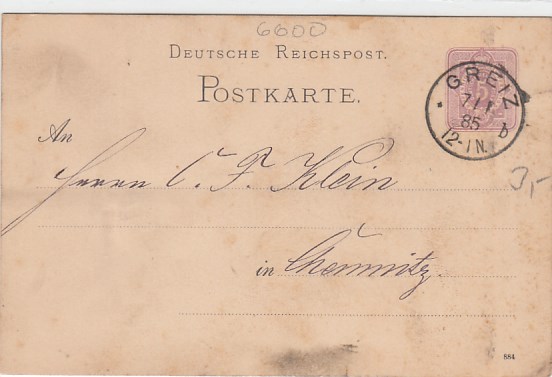 6600
DEUTSCHE REICHSPOST.
POSTKARTE.
GREIZ
7/1
85 b
12-1N.
An
Herrn C. F. Klein
3,-
in Chemnitz.
884